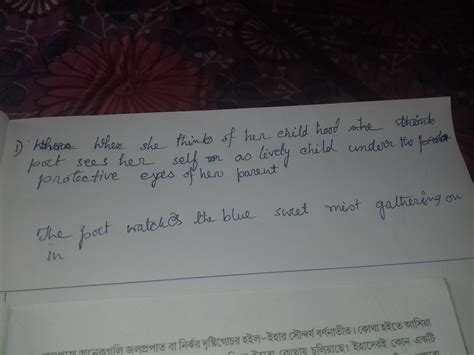 1) Where When she thinks of her child hood she think
poet sees her self or as lively child under the paren
protective eyes of her parent
The poet watches the blue sweet mist gathering on
in
জলপ্রপাত বা নির্ঝর দৃষ্টিগোচর হইল-ইহার সৌন্দর্য বর্ণনাতীত। কোথা হইতে আসিয়া
কোথায় চলিয়াছে। ইহাদেরই কোন একটি